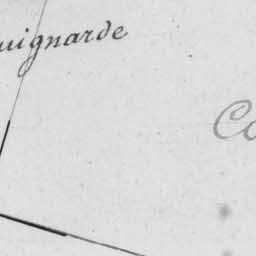 uignarde
Co